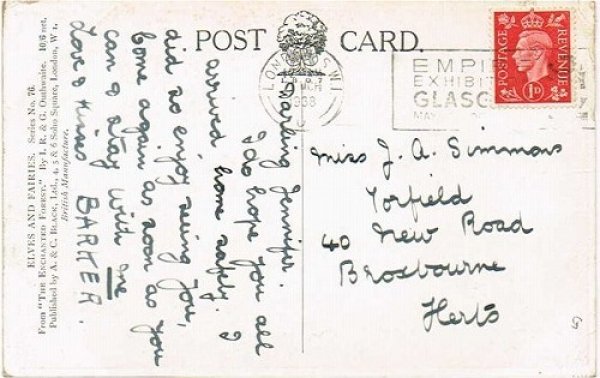 POST CARD.
LONDON S.W.1
1938
EMPI
EXHIBIT
GLASG
MAY
POSTAGE
REVENUE
1D
Darling Jennifer.
I do hope you all
arrived home safely. I
did so enjoy seeing you,
come again as soon as you
can & stay with me
Love & Kisses BARKER.
Miss J. A. Simmons
Torfield
40 New Road
Broxbourne
Herts
ELVES AND FAIRIES. Series No. 76.
From "THE ENCHANTED FOREST." By I. R. & G. Outhwaite. 10/6 net.
Published by A. & C. BLACK, LTD., 4, 5 & 6 Soho Square, London, W. 1.
British Manufacture.